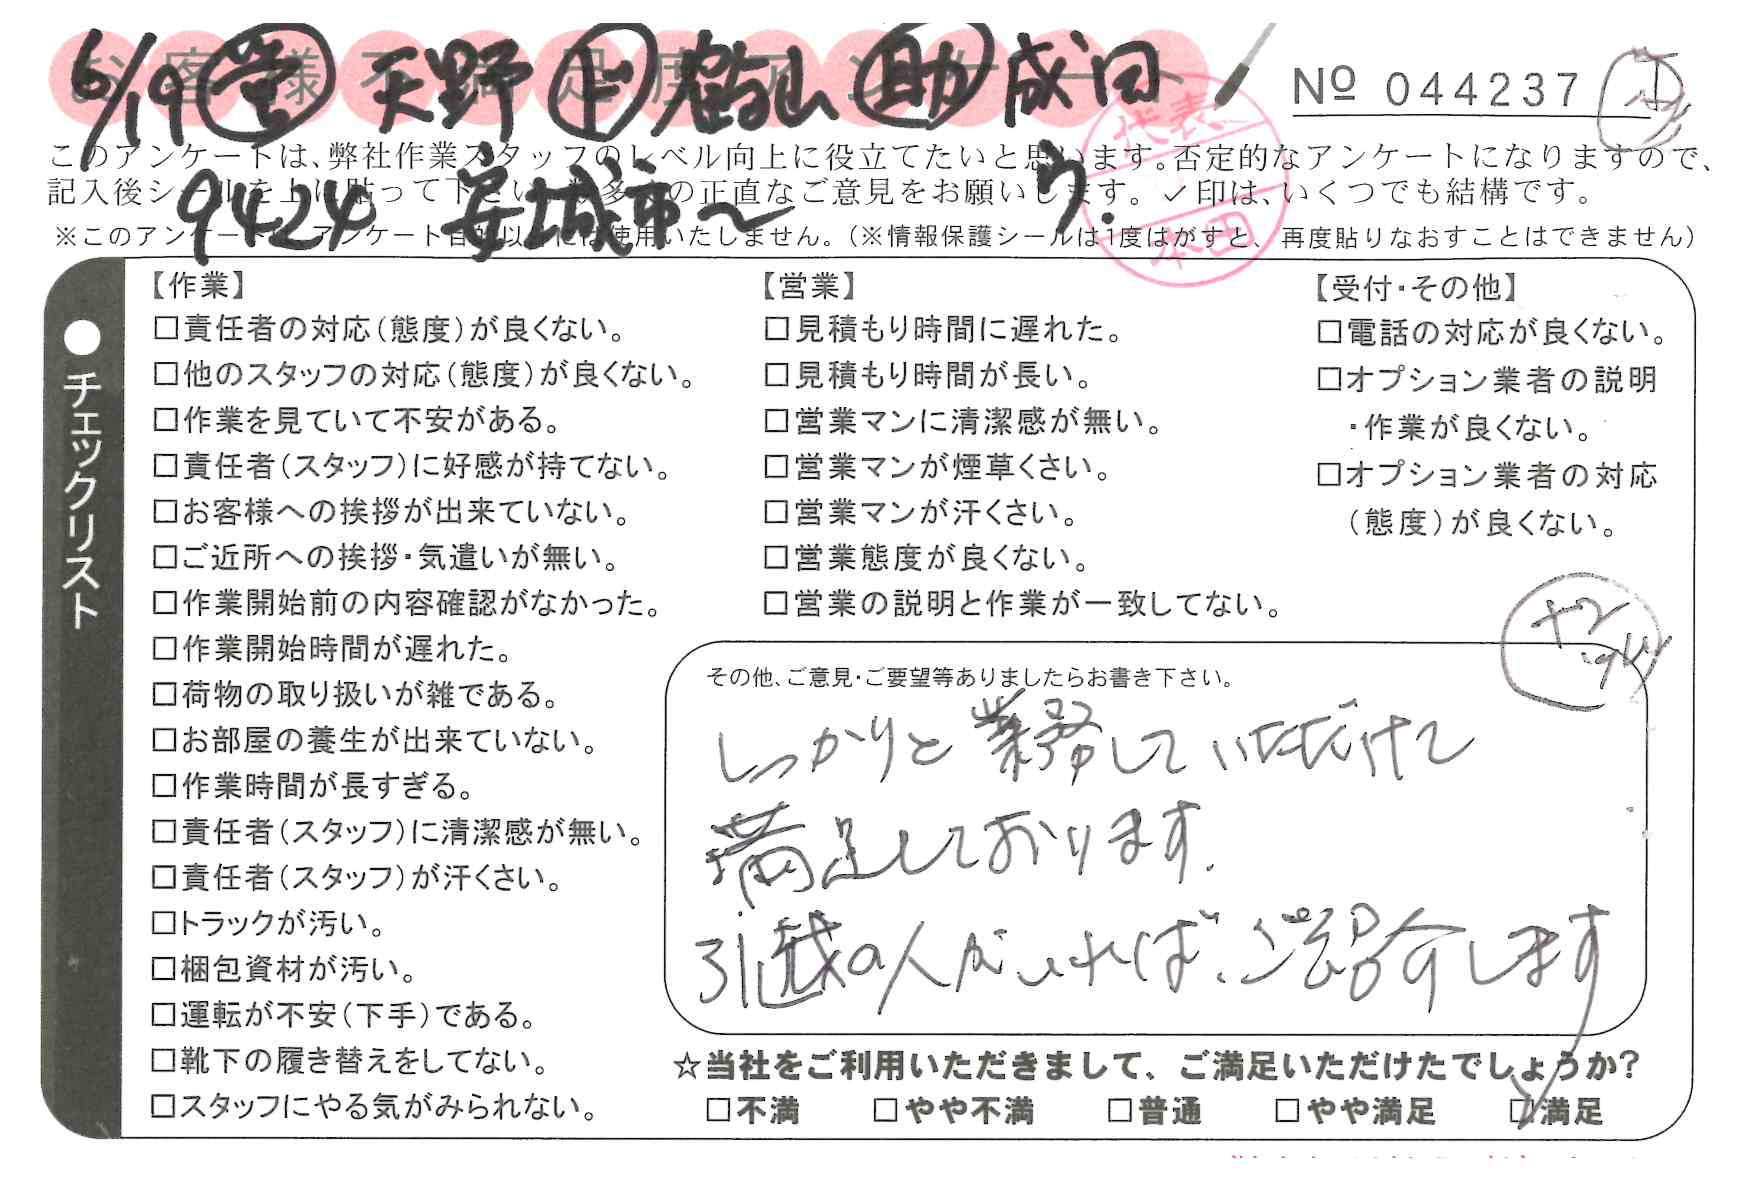 お客様不満足度アンケート
6/19 営 天野 ド 鶴山 助 成田
No 044237
このアンケートは、弊社作業スタッフのレベル向上に役立てたいと思います。否定的なアンケートになりますので、
記入後シールを上に貼って下さい。数多くの正直なご意見をお願いします。✓印は、いくつでも結構です。
9424 安城市〜
※このアンケートは、アンケート目的以外には使用いたしません。(※情報保護シールは1度はがすと、再度貼りなおすことはできません)
代表
本田
●チェックリスト
【作業】
□責任者の対応(態度)が良くない。
□他のスタッフの対応(態度)が良くない。
□作業を見ていて不安がある。
□責任者(スタッフ)に好感が持てない。
□お客様への挨拶が出来ていない。
□ご近所への挨拶・気遣いが無い。
□作業開始前の内容確認がなかった。
□作業開始時間が遅れた。
□荷物の取り扱いが雑である。
□お部屋の養生が出来ていない。
□作業時間が長すぎる。
□責任者(スタッフ)に清潔感が無い。
□責任者(スタッフ)が汗くさい。
□トラックが汚い。
□梱包資材が汚い。
□運転が不安(下手)である。
□靴下の履き替えをしてない。
□スタッフにやる気がみられない。
【営業】
□見積もり時間に遅れた。
□見積もり時間が長い。
□営業マンに清潔感が無い。
□営業マンが煙草くさい。
□営業マンが汗くさい。
□営業態度が良くない。
□営業の説明と作業が一致してない。
【受付・その他】
□電話の対応が良くない。
□オプション業者の説明
・作業が良くない。
□オプション業者の対応
(態度)が良くない。
その他、ご意見・ご要望等ありましたらお書き下さい。
しっかりと業務していただけて
満足しております.
引越の人がいれば、ご紹介します
☆当社をご利用いただきまして、ご満足いただけたでしょうか?
□不満 □やや不満 □普通 □やや満足 ☑満足